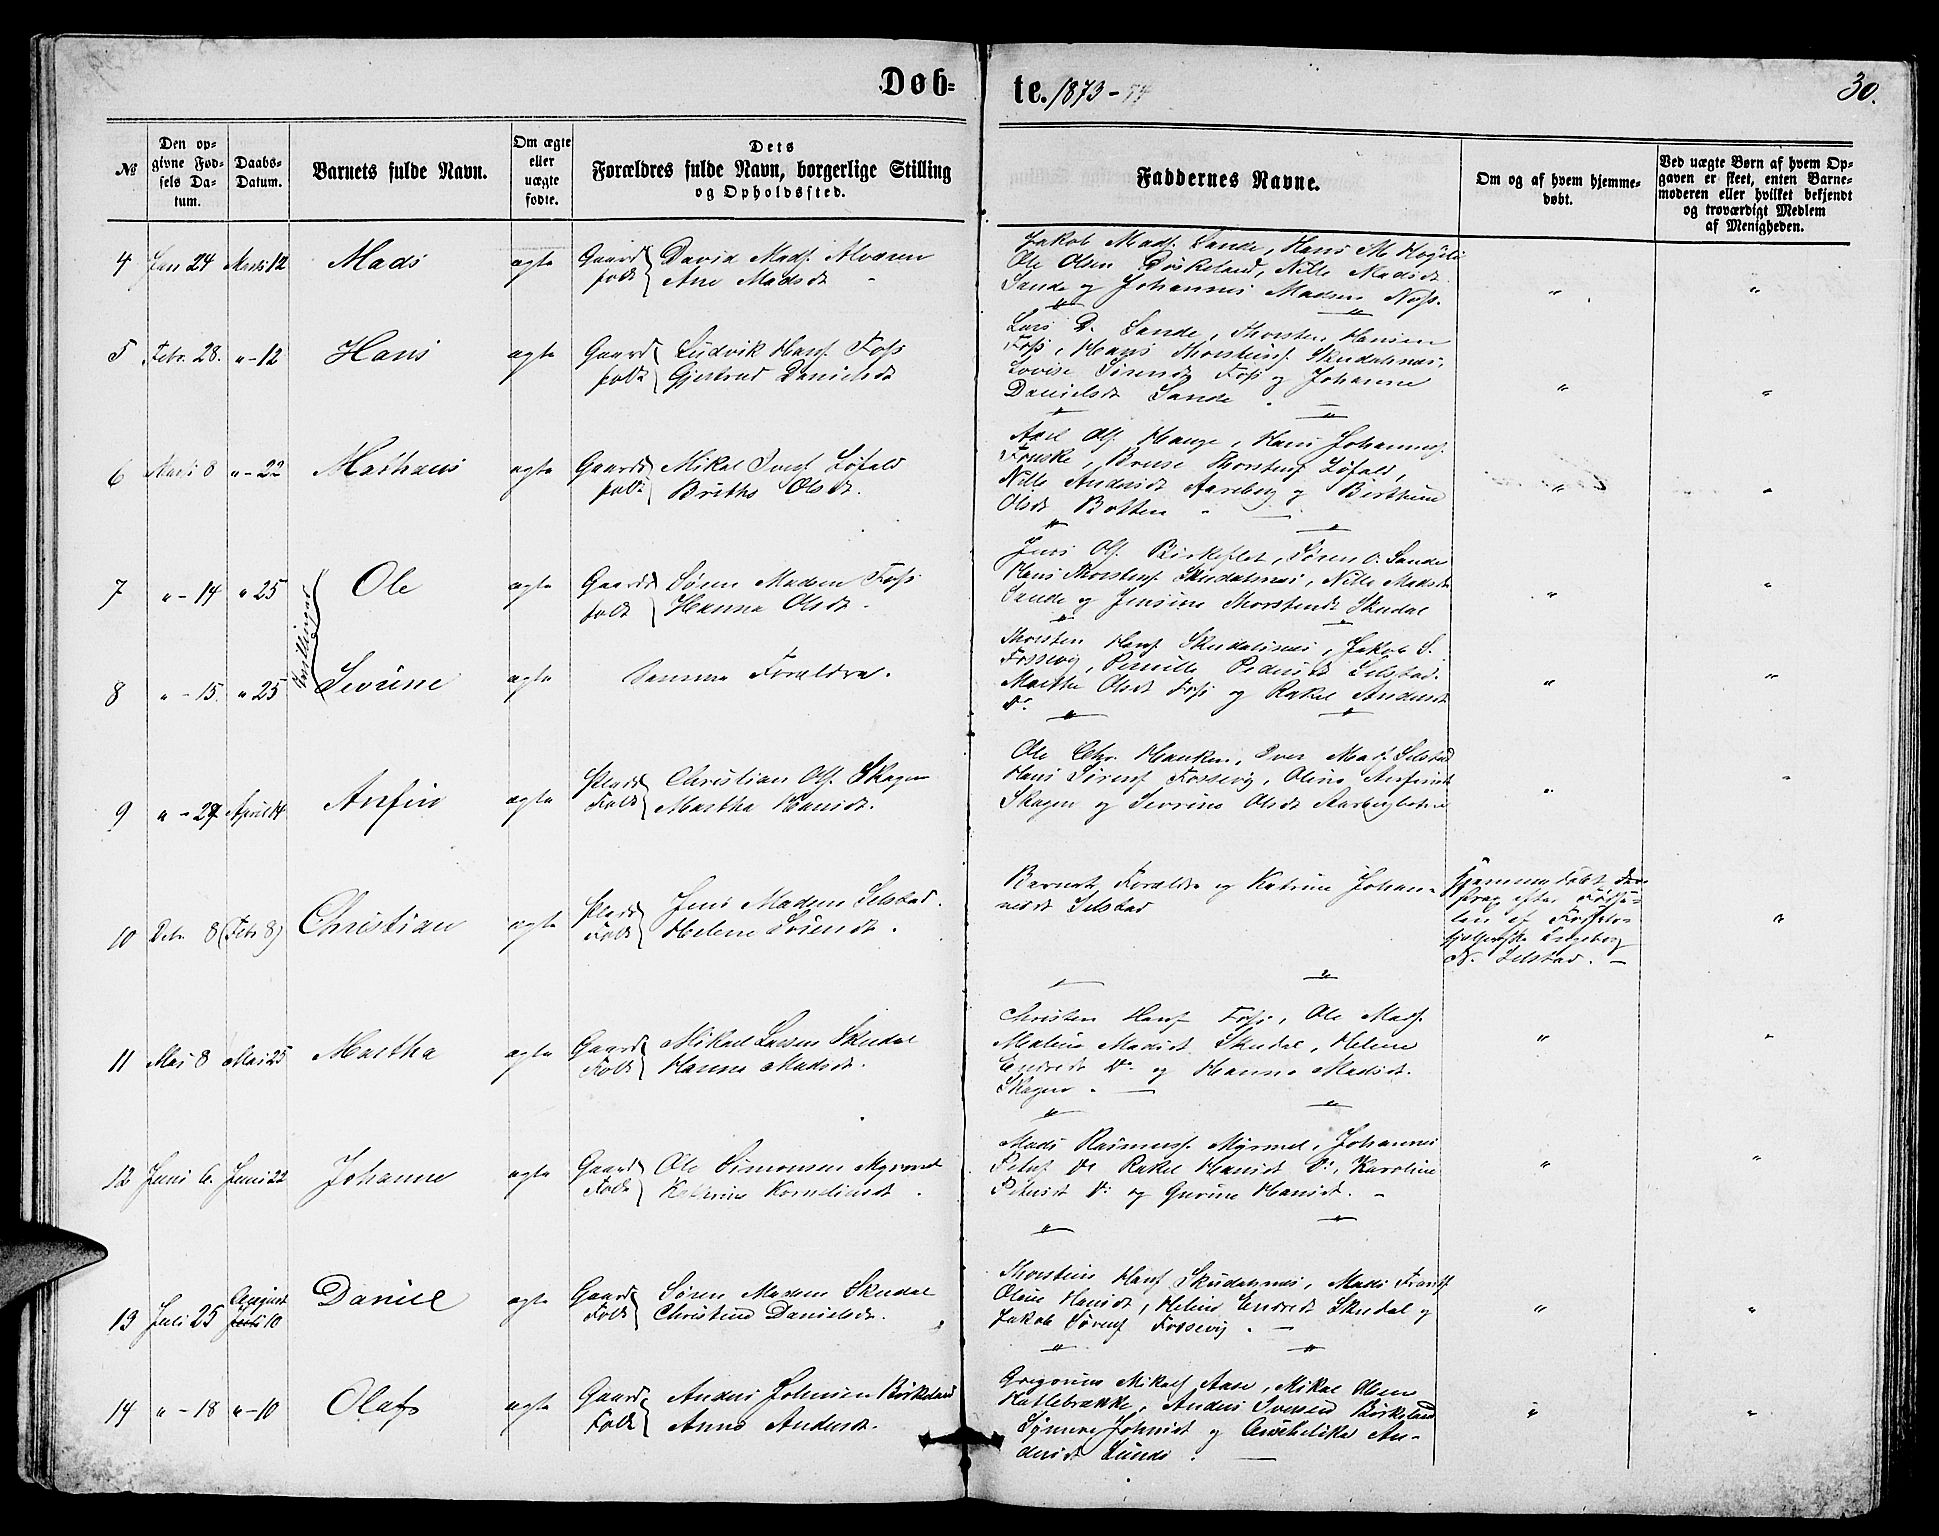 Døb-
te. 1873-74
30.
№
Den op-
givne Fød-
sels Da-
tum.
Daabs-
Datum.
Barnets fulde Navn.
Om ægte
eller
uægte
fødte.
Dets
Forældres fulde Navn, borgerlige Stilling
og Opholdssted.
Faddernes Navne.
Om og af hvem hjemme-
døbt.
Ved uægte Børn af hvem Op-
gaven er skeet, enten Barne-
moderen eller hvilket bekjendt
og troværdigt Medlem
af Menigheden.
4 Jan 24 Marts 12 Mads ægte Gaard
folk
David Mads. Alværen
Ane Madsdt
Jakob Mads. Sande, Hans M.
Ole Olsen Birkeland, Nille Madsdt
Sande og Johannes Madsen
5 Febr. 28. "-12 Hans ægte Gaard
folk
Ludvik Hans. Foss
Gjertrud Danielsdt
Lars D. Sande, Thorsten Hansen
Foss, Hans Thorstens. Skudalsnæs,
Lovise Sørensdt Foss og Johanne
Danielsdt Sande
6 Marts 8 "-22 Mathæus ægte Gaard
folk
Mikal Ivers. Løfald
Brithe Olsdt.
Axel Ols. Hauge, Hans Johannes.
Thorstens. Løfald,
Nille Andersdt Aareberg og Birthine
Olsdt Botten
7 "-14 "25 Tvillinger Ole ægte Gaard
folk
Søren Madsen Foss
Hanna Olsdt.
Jens Ols. Birkeflot, Søren O. Sande
Hans Thorstens. Skudalsnæs, Nille Madsdt
Sande og Jensine Thorstensdt Skudal
8 "-15. "25 Sevrine ægte Samme Forældre.
Thorsten Hans. Skudalsnæs, Jakob S.
Fossevig, Pernille Pedersdt Selstad.
Marthe Olsdt Foss og Rakel Andersdt
do
9 "-27 April 14 Anfin ægte Plads
Folk
Christian Ols. Skagen
Martha Hansdt.
Ole Chr. Hauken, Iver Mads. Selstad
Hans Sørens. Fossevig, Oline Anfinsdt
Skagen og Sevrine Olsdt
10 Febr 8 (Febr 8) Christian ægte Plads
Folk
Jens Madsen Selstad.
Helene Sørensdt.
Barnets Forældre og Katrine Johan-
nesdt Selstad
Hjemmedøbt
strax efter Fødse-
len af
Ingeborg
N. Selstad.
11 Mai 8 Mai 25 Martha ægte Gaard
Folk
Mikael Larsen Skudal
Hanne Madsdt.
Christen Hans. Foss, Ole Mads.
Malene Madsdt Skudal, Helene
Endredt do og Hanne Madsdt.
Skagen
12 Juni 6. Juni 22 Johanne ægte Gaard
Folk
Ole Simonsen Myrmel
Katrine Kornelisdt.
Mads Rasmuss. Myrmel, Johannes
Peters. do Rakel Hansdt do, Karoline
Petersdt do og Gurine Hansdt.
13 Juli 25 August
Juli 10 Daniel ægte Gaard
Folk
Søren Madsen Skudal
Christine Danielsdt.
Thorstein Hans. Skudalsnæs, Mads Frants.
Oline Hansdt, Helene Endredt Skudal og
Jakob Sørens. Fossevig.
14 "-18 "-10 Olaf ægte Gaard
Folk
Anders Johnsen Birkeland
Anne Andersdt.
Gregorius Mikals. Aase, Mikal Olsen
Katlebrække, Anders Iversen Birkeland
Synneve Johnsdt og An-
dersdt Lunde.